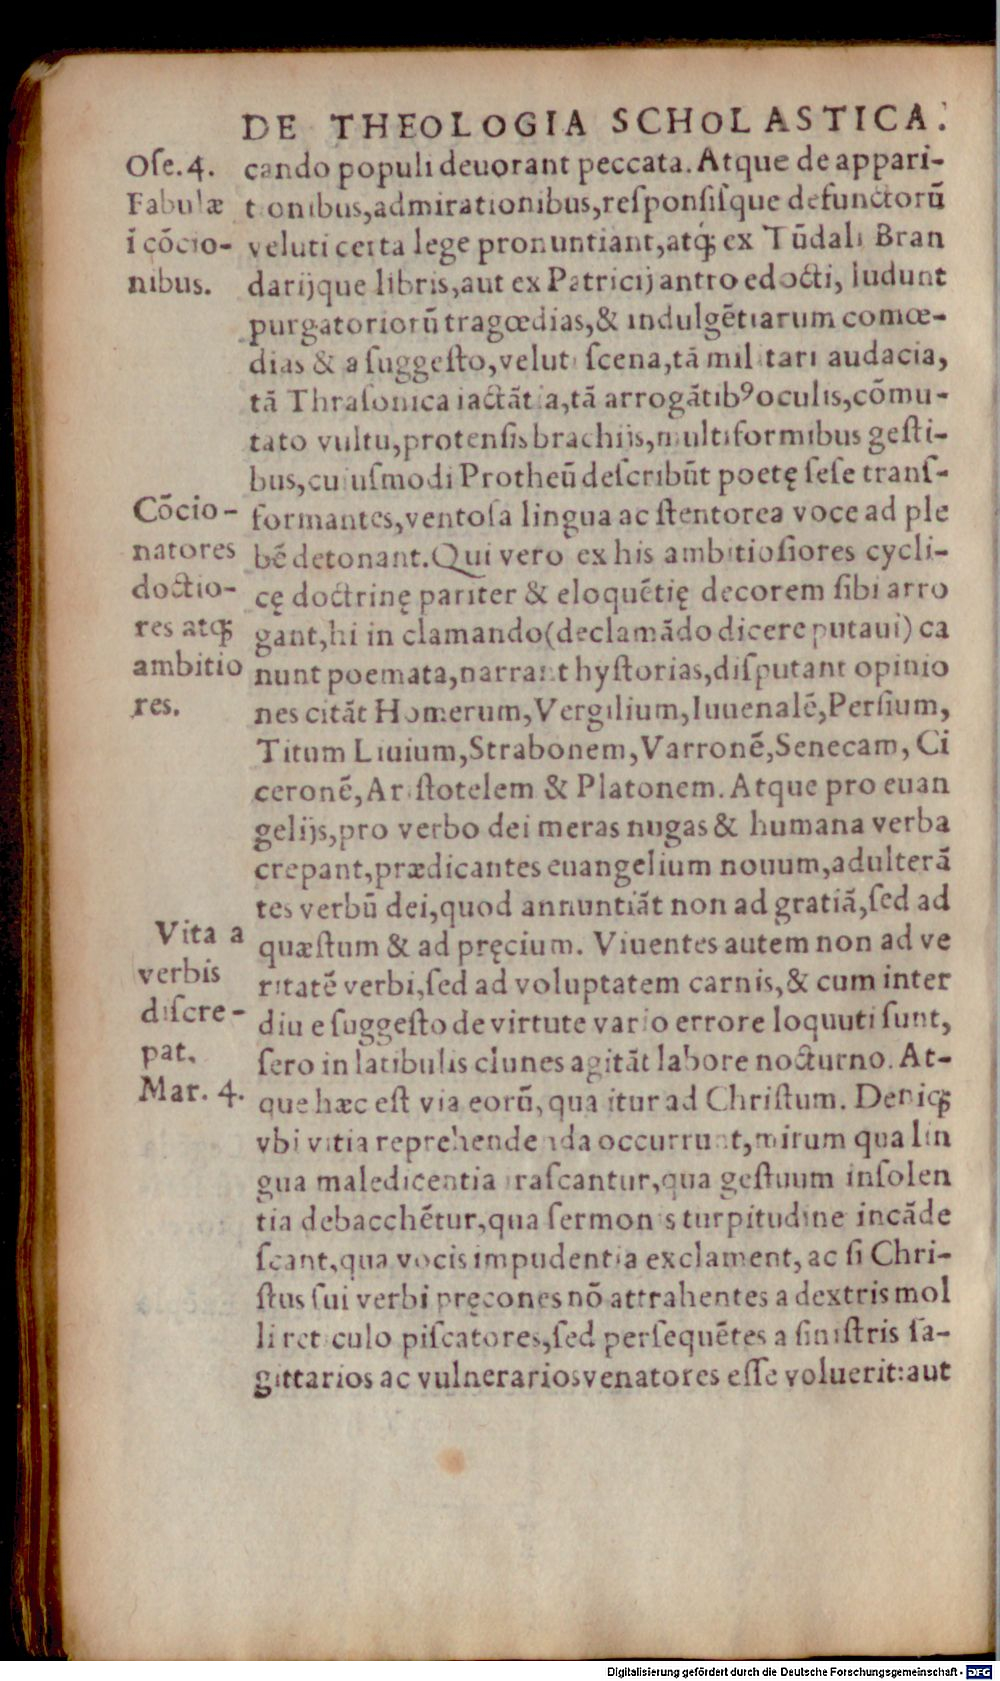 DE THEOLOGIA SCHOLASTICA.
Oſe. 4.
Fabulæ
ī cōcio-
nibus.
cando populi deuorant peccata. Atque de appari-
tionibus, admirationibus, reſponſiſque defunctorū
veluti certa lege pronuntiant, atq; ex Tūdali Bran
darijque libris, aut ex Patricij antro edocti, ludunt
purgatoriorū tragœdias, & indulgētiarum comœ-
dias & a ſuggeſto, velut ſcena, tā militari audacia,
tā Thraſonica iactātia, tā arrogātibꝰ oculis, cōmu-
tato vultu, protenſis brachijs, multiformibus geſti-
bus, cuiuſmodi Protheū deſcribūt poetę ſeſe tranſ-
Cōcio-
natores
doctio-
res atq;
ambitio
res.
formantes, ventoſa lingua ac ſtentorea voce ad ple
bē detonant. Qui vero ex his ambitioſiores cycli-
cę doctrinę pariter & eloquētię decorem ſibi arro
gant, hi in clamando (declamādo dicere putaui) ca
nunt poemata, narrant hyſtorias, diſputant opinio
nes citāt Homerum, Vergilium, Iuuenalē, Perſium,
Titum Liuium, Strabonem, Varronē, Senecam, Ci
ceronē, Ariſtotelem & Platonem. Atque pro euan
gelijs, pro verbo dei meras nugas & humana verba
crepant, prædicantes euangelium nouum, adulterā
tes verbū dei, quod annuntiāt non ad gratiā, ſed ad
Vita a
verbis
diſcre-
pat.
Mar. 4.
quæſtum & ad pręcium. Viuentes autem non ad ve
ritatē verbi, ſed ad voluptatem carnis, & cum inter
diu e ſuggeſto de virtute vario errore loquuti ſunt,
ſero in latibulis clunes agitāt labore nocturno. At-
que hæc eſt via eorū, qua itur ad Chriſtum. Deniq;
vbi vitia reprehendenda occurrunt, mirum qua lin
gua maledicentia raſcantur, qua geſtuum inſolen
tia debacchētur, qua ſermonis turpitudine incāde
ſcant, qua vocis impudentia exclament, ac ſi Chri-
ſtus ſui verbi pręcones nō attrahentes a dextris mol
li reticulo piſcatores, ſed perſequētes a ſiniſtris ſa-
gittarios ac vulnerarios venatores eſſe voluerit: aut
Digitalisierung gefördert durch die Deutsche Forschungsgemeinschaft - DFG